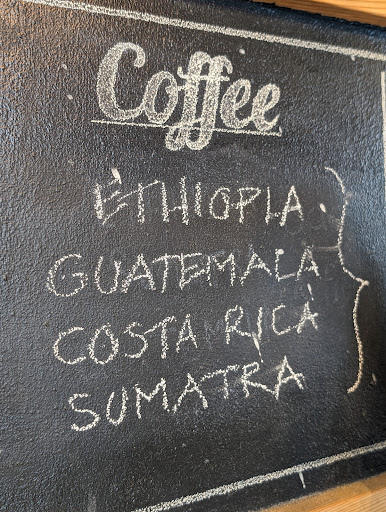 Coffee
ETHIOPIA
GUATEMALA
COSTA RICA
SUMATRA